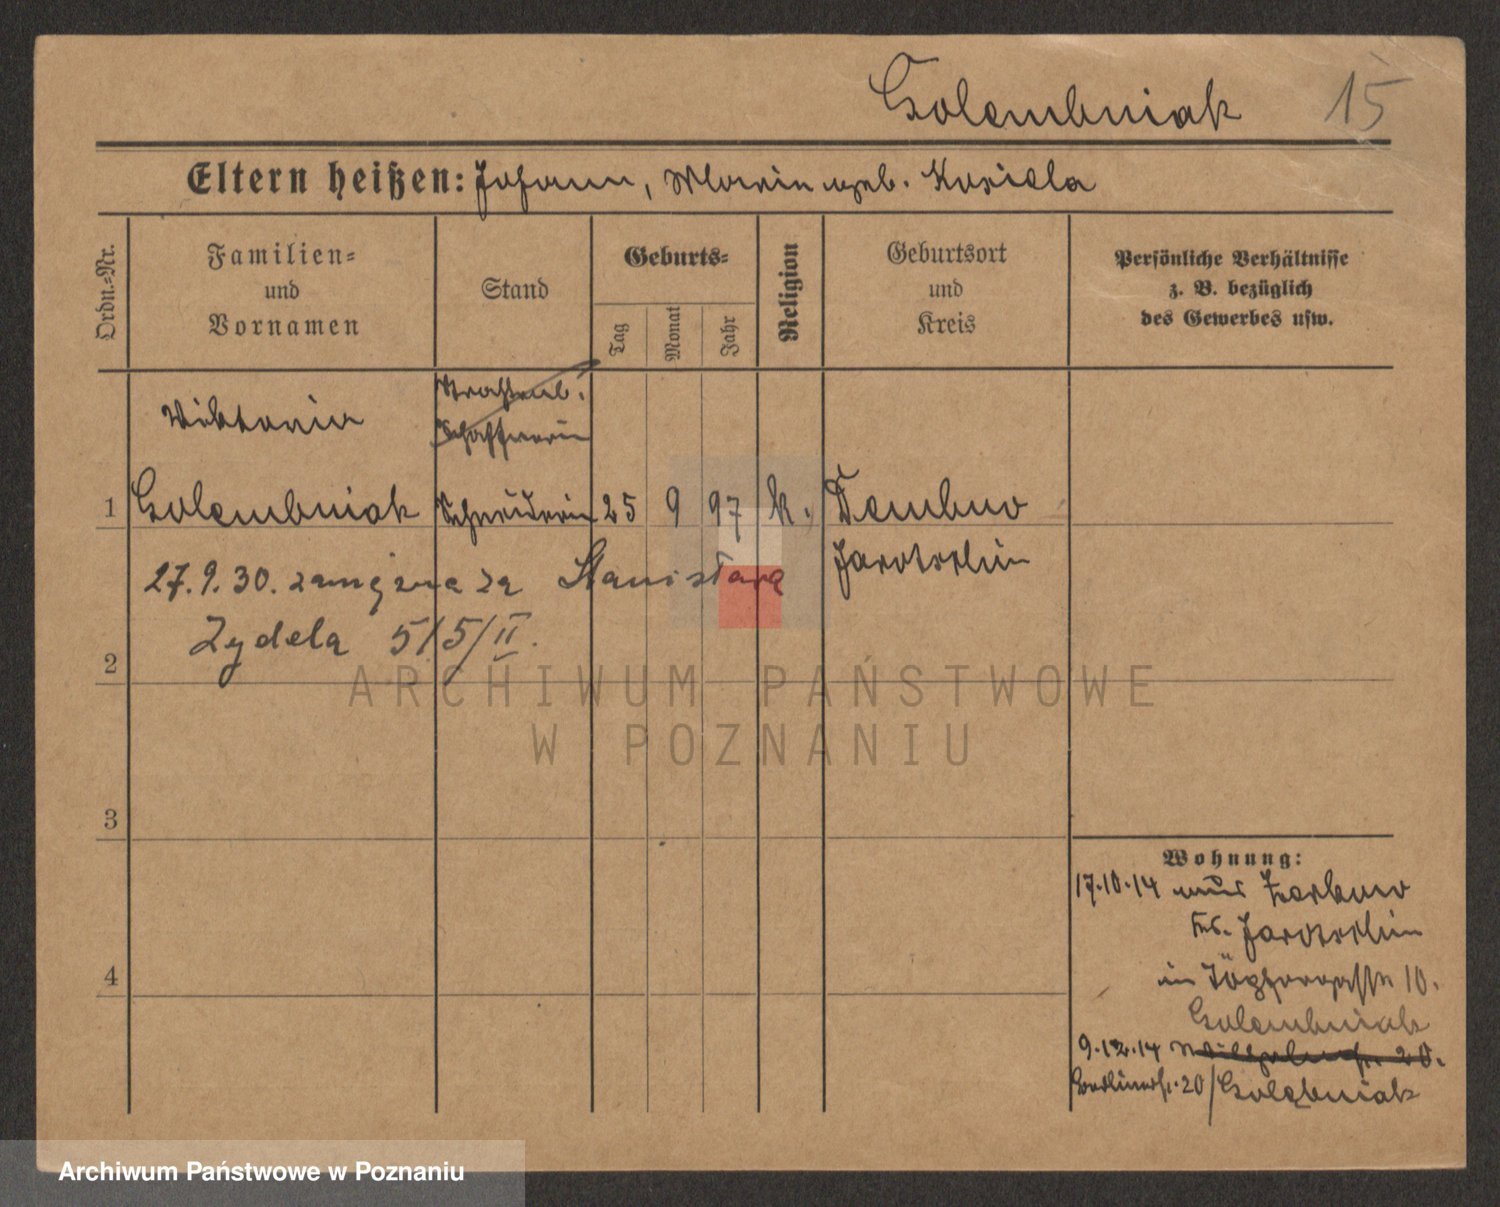 Golembniak 15
Eltern heißen: Johann, Maria geb. Kosicla
Ordn.-Nr.
Familien-
und
Vornamen
Stand
Geburts-
Tag
Monat
Jahr
Religion
Geburtsort
und
Kreis
Persönliche Verhältnisse
z. B. bezüglich
des Gewerbes usw.
Straßenb.
Schaffnerin
Viktoria
1 Golembniak Schneiderin 25 9 97 k. Dembno
Jarotschin
27.9.30. zamężna za Stanisława
Zydela 5/5/II.
2
3
4
Wohnung:
17.10.14 aus Zerkow
Jarotschin
in 10.
Golembniak
9.12.14 Wilhelmstr. 20.
20/Golębniak
ARCHIWUM PAŃSTWOWE
W POZNANIU
Archiwum Państwowe w Poznaniu